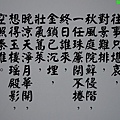 往事只堪哀
對景難排
秋風庭院蘚侵階
一任珠簾閒不捲
終日誰來
金鎖已沉埋
壯氣蒿萊
晚涼天淨月華開
想得玉樓瑤殿影
空照秦淮